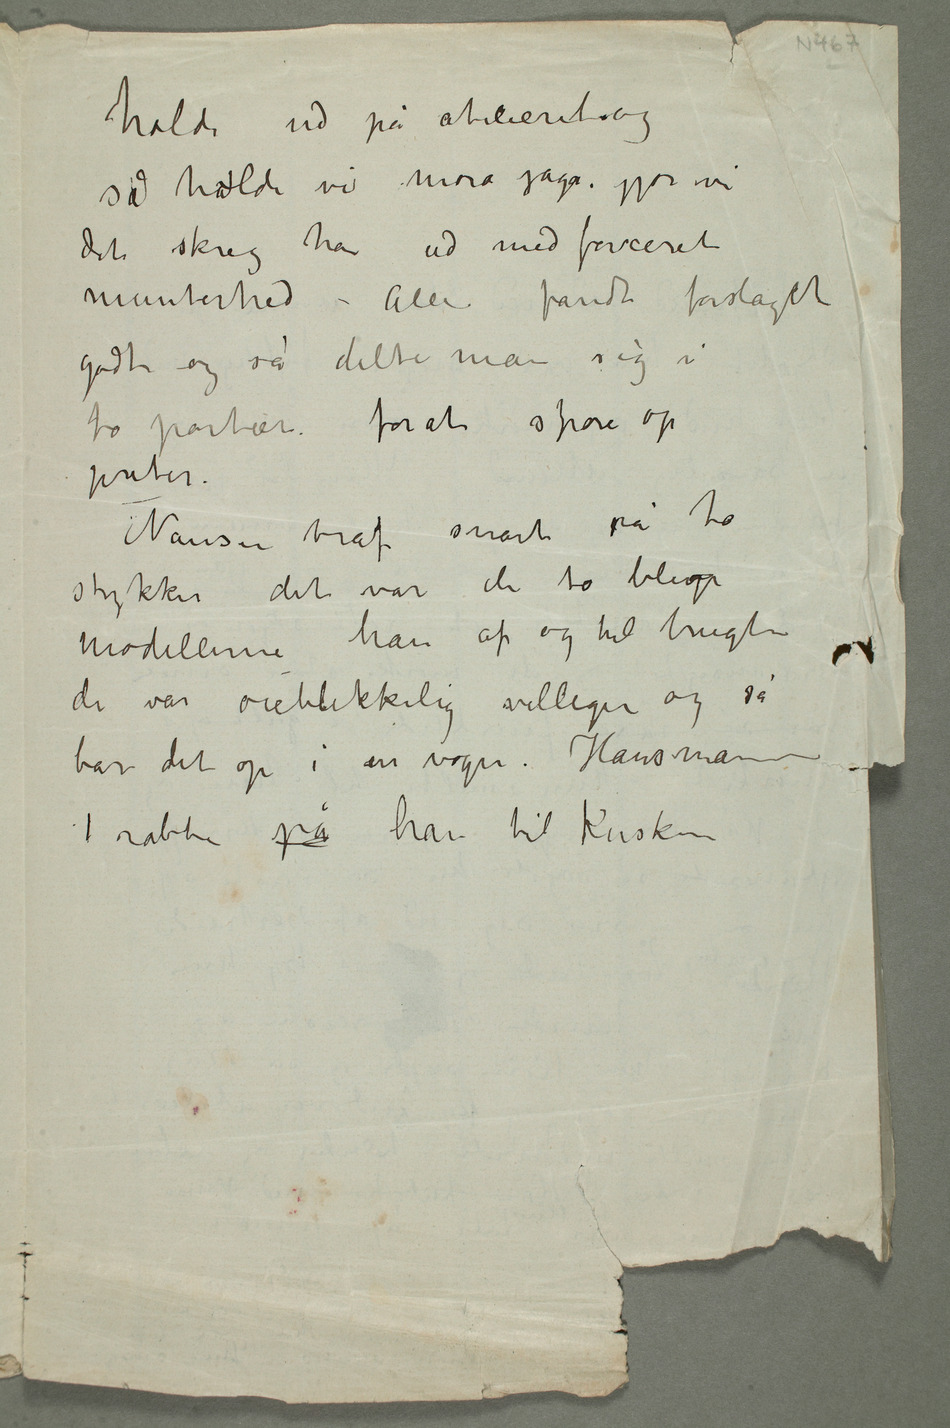 N467
holde ud på atelieret og
så holde vi moro jaga. gjør vi
det skreg han ud med forceret
munterhed – Alle fandt forslaget
godt og så delte man sig i
to partier. forat spore op
jenter.
Nansen traf snart på to
stykker det var de to blege
modellerne han af og til brugte
de var øieblikkelig villige og så
bar det op i en vogn. Hausmann
1 rabbe på han til Kusken